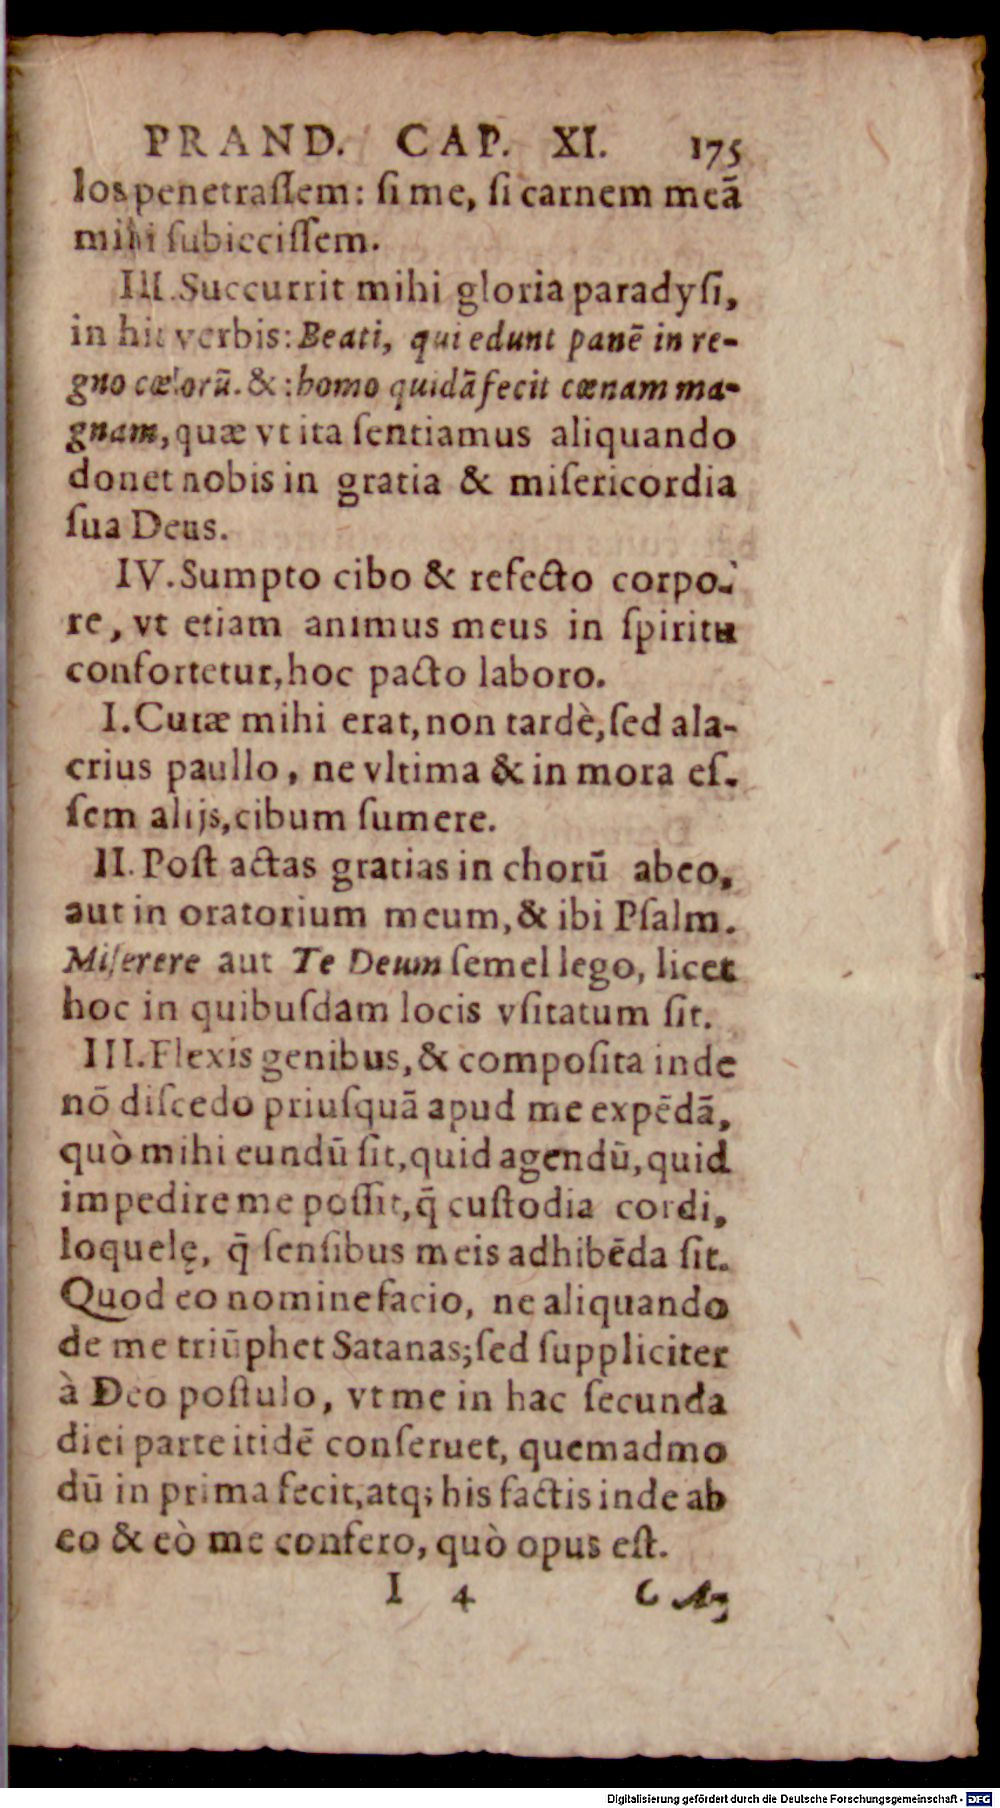 PRAND. CAP. XI. 175
los penetraſſem: ſi me, ſi carnem meā
mihi ſubieciſſem.
III. Succurrit mihi gloria paradyſi,
in his verbis: Beati, qui edunt panē in re-
gno cœlorū. &: homo quidā fecit cœnam ma-
gnam, quæ vt ita ſentiamus aliquando
donet nobis in gratia & miſericordia
ſua Deus.
IV. Sumpto cibo & refecto corpo-
re, vt etiam animus meus in ſpiritu
confortetur, hoc pacto laboro.
I. Curæ mihi erat, non tardè, ſed ala-
crius paullo, ne vltima & in mora eſ-
ſem alijs, cibum ſumere.
II. Poſt actas gratias in chorū abeo,
aut in oratorium meum, & ibi Pſalm.
Miſerere aut Te Deum ſemel lego, licet
hoc in quibuſdam locis vſitatum ſit.
III. Flexis genibus, & compoſita inde
nō diſcedo priuſquā apud me expēdā,
quò mihi eundū ſit, quid agendū, quid
impedire me poſſit, q̄ cuſtodia cordi,
loquelę, q̄ ſenſibus meis adhibēda ſit.
Quod eo nomine facio, ne aliquando
de me triūphet Satanas; ſed ſuppliciter
à Deo poſtulo, vt me in hac ſecunda
diei parte itidē conſeruet, quemadmo
dū in prima fecit, atq; his factis inde ab
eo & eò me confero, quò opus eſt.
I 4
Digitalisierung gefördert durch die Deutsche Forschungsgemeinschaft - DFG